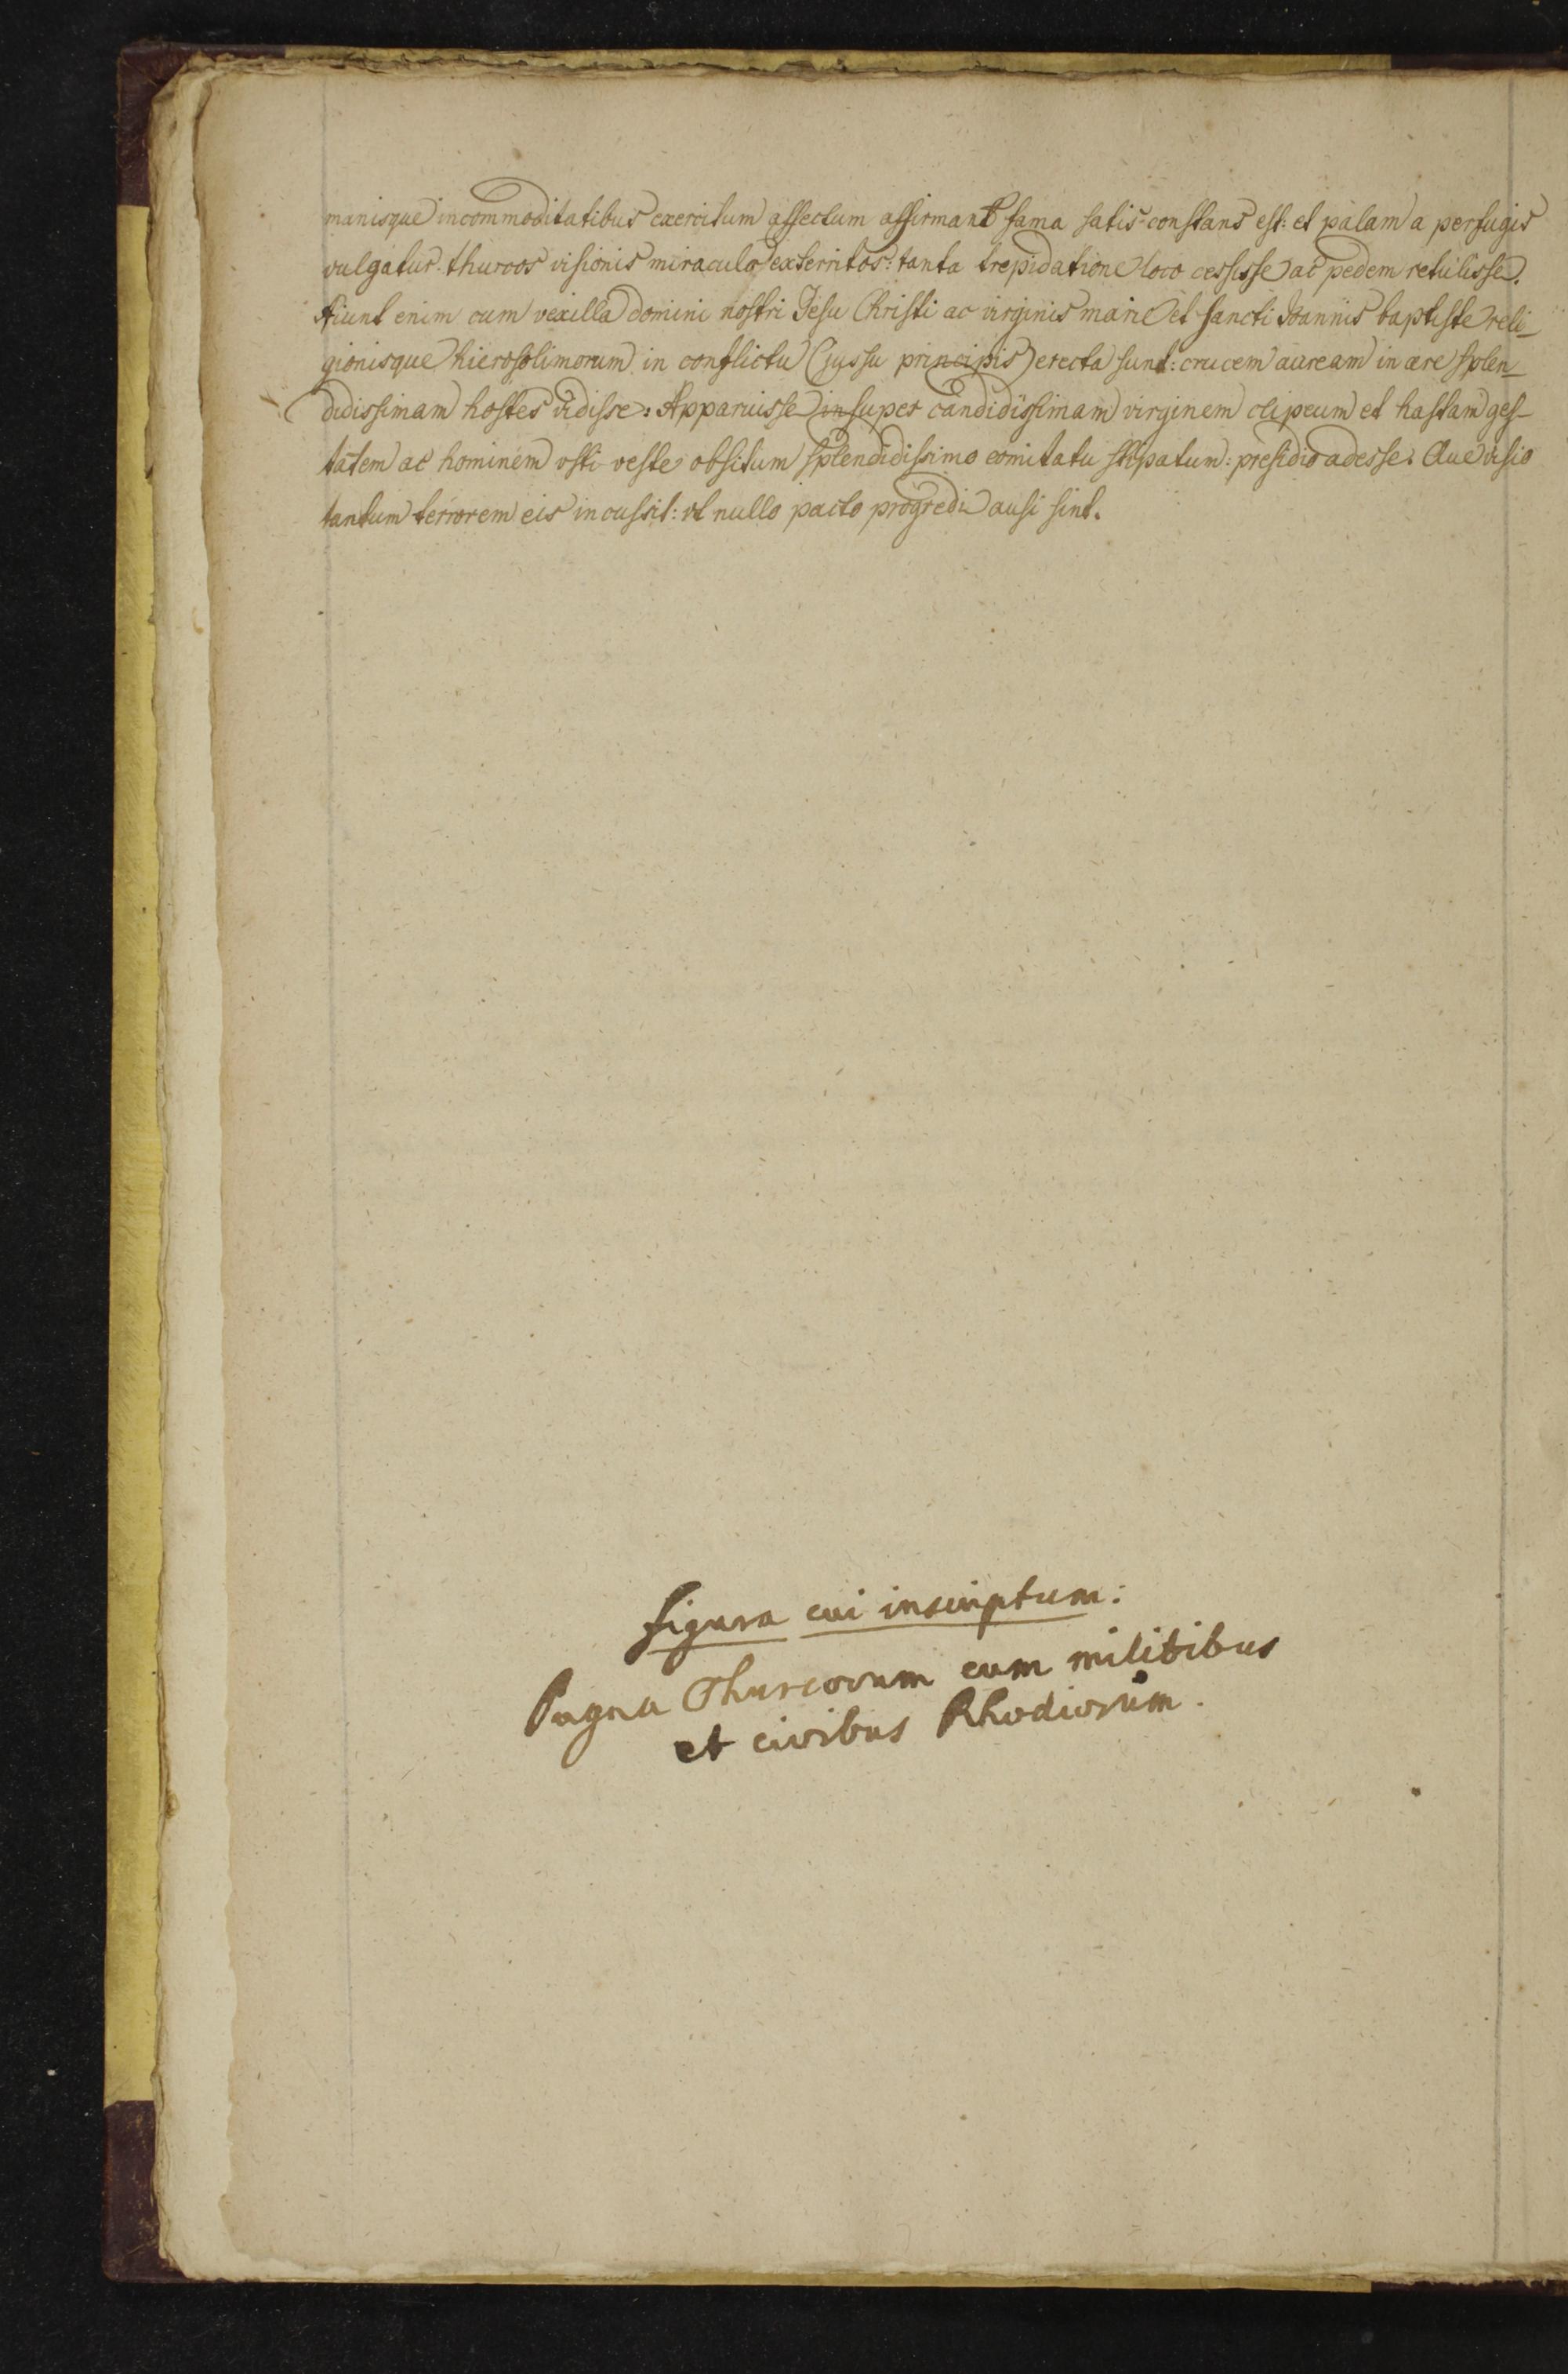 manisque incommoditatibus exercitum affectum affirmant fama satis constans est: et palam a perfugis
vulgatur. thurcos visionis miraculo exterritos: tanta trepidatione loco cessisse ac pedem retulisse.
Aiunt enim cum vexilla domini nostri Jesu Christi ac virginis marie et sancti Joannis baptiste reli-
gionisque hierosolimorum in conflictu (jussu principis) erecta sunt: crucem auream in aere splen-
didissimam hostes vidisse: Apparuisse insuper candidissimam virginem clipeum et hastam ges-
tātem ac hominem vsti veste obsitum splendidissimo comitatu stipatum: presidio adesse. Que visio
tantum terrorem eis incussit: vt nullo pacto progredi ausi sint.
figura cui inscriptum:
Pugna Thurcorum cum militibus
et civibus Rhodiorum.